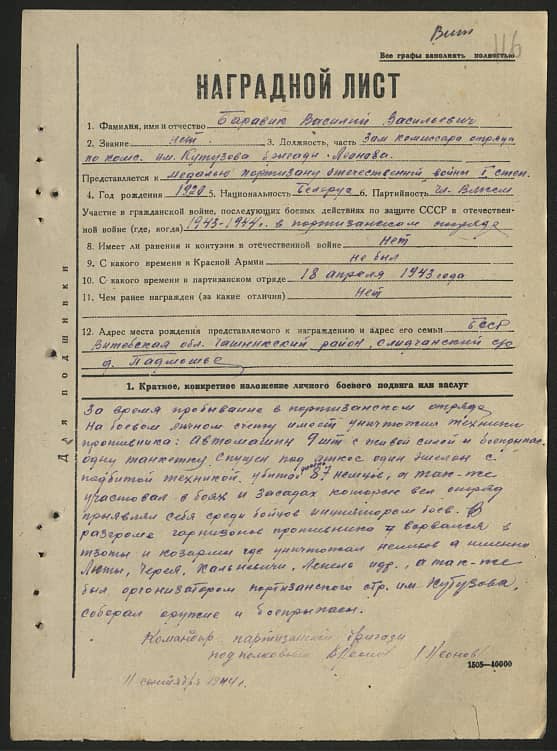 Вит
116
Все графы заполнять полностью
НАГРАДНОЙ ЛИСТ
1. Фамилия, имя и отчество Баравик Василий Васильевич
2. Звание нет 3. Должность, часть Зам комиссара отряда
по комс. им. Кутузова бригады Леонова.
Представляется к медалью партизану отечественной войны I степ.
4. Год рождения 1920 5. Национальность Белорус 6. Партийность чл. ВЛКСМ
Участие в гражданской войне, последующих боевых действиях по защите СССР в отечествен-
ной войне (где, когда) 1943-1944 г. в партизанском отряде
8. Имеет ли ранения и контузии в отечественной войне Нет
9. С какого времени в Красной Армии не был
10. С какого времени в партизанском отряде 18 апреля 1943 года
11. Чем ранее награжден (за какие отличия) Нет
12. Адрес места рождения представляемого к награждению и адрес его семьи БССР
Витебская обл. Чашникский район, Слидчанский с/с
д. Падмошье
Для подшивки
1. Краткое, конкретное изложение личного боевого подвига или заслуг
За время пребывание в партизанском отряде
На боевом личном счету имеет уничтожил техники
противника: Автомашин 9 шт с живой силой и боеприпас.
одну танкетку. Спущен под откос один эшелон с
подбитой техникой. убитой 87 немцов, а так-же
участовал в боях и засадах которые вел отряд
приявлял себя среди бойцов инициатором боев. В
разгроме гарнизонов противника ворвался в
дзоты и козармы где уничтожал немцов а именно
Люты, Черея, Халыневичи, Лепель идр., а так-же
был организатором партизанского отр. им Кутузова,
соберал оружие и боеприпасы.
Командир партизанской бригады
подполковник Леонов
11 сентября 1944 г.
1505—40000